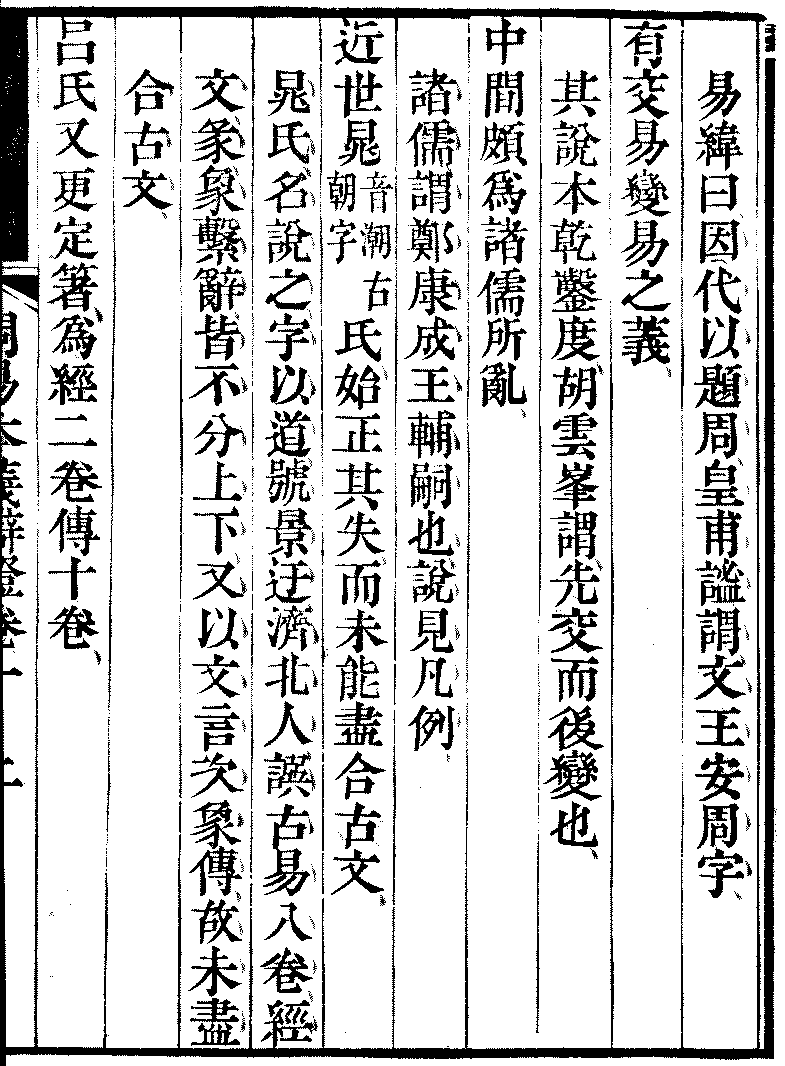 易緯曰因代以題周皇甫謐謂文王安周字
有交易變易之義
其說本乾鑿度胡雲峯謂先交而後變也
中間頗爲諸儒所亂
諸儒謂鄭康成王輔嗣也說見凡例
近世晁音潮古朝字氏始正其失而未能盡合古文
晁氏名說之字以道號景迂濟北人譔古易八卷經
文彖象繫辭皆不分上下又以文言次象傳故未盡
合古文
呂氏又更定著爲經二卷傳十卷